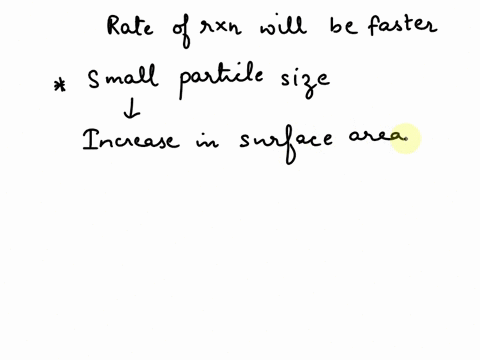 Rate of rxn will be faster
* Small particle size
↓
Increase in surface area